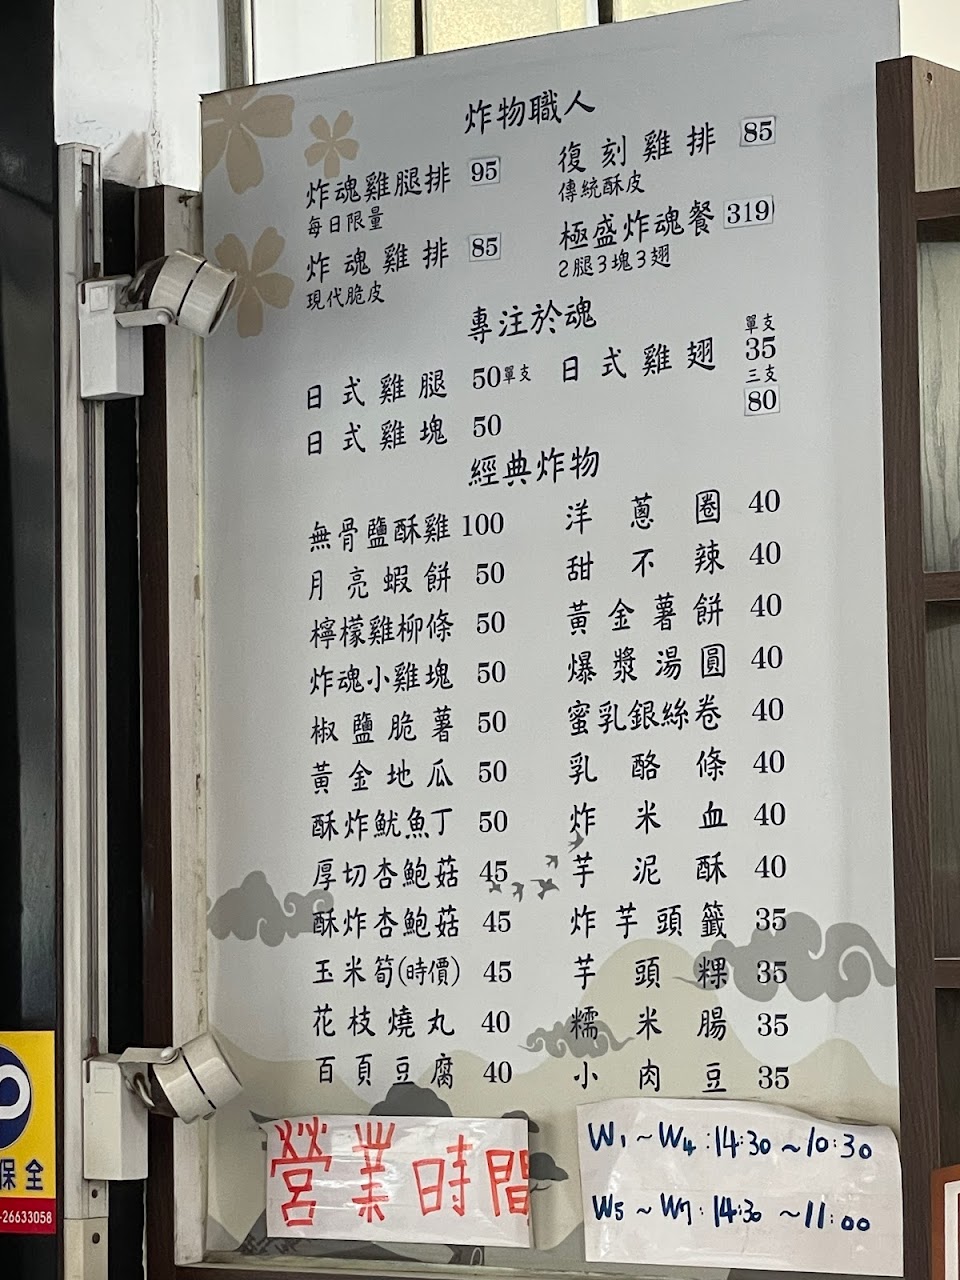 炸物職人
炸魂雞腿排 95
每日限量
炸魂雞排 85
現代脆皮
復刻雞排 85
傳統酥皮
極盛炸魂餐 319
2腿3塊3翅
專注於魂
日式雞腿 50單支
日式雞塊 50
日式雞翅 單支
35
三支
80
經典炸物
無骨鹽酥雞 100
月亮蝦餅 50
檸檬雞柳條 50
炸魂小雞塊 50
椒鹽脆薯 50
黃金地瓜 50
酥炸魷魚丁 50
厚切杏鮑菇 45
酥炸杏鮑菇 45
玉米筍(時價) 45
花枝燒丸 40
百頁豆腐 40
洋蔥圈 40
甜不辣 40
黃金薯餅 40
爆漿湯圓 40
蜜乳銀絲卷 40
乳酪條 40
炸米血 40
芋泥酥 40
炸芋頭籤 35
芋頭粿 35
糯米腸 35
小肉豆 35
營業時間
W1~W4:14:30~10:30
W5~W7:14:30~11:00
保全
-26633058